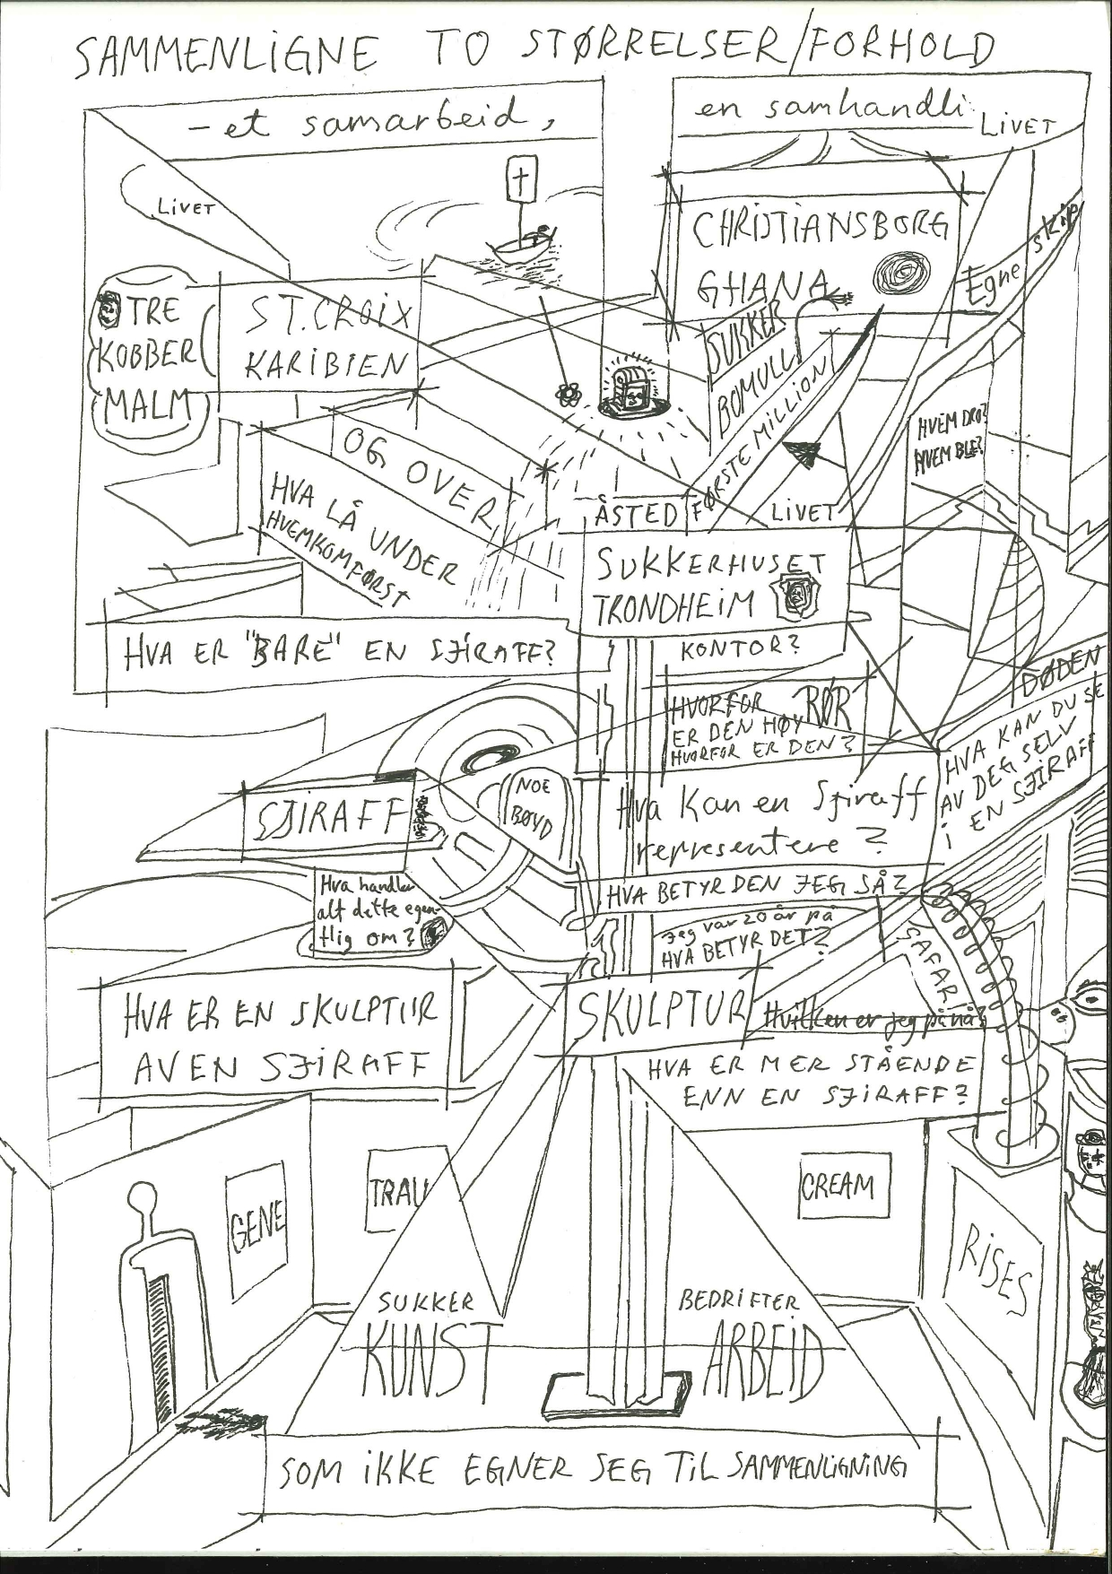 SAMMENLIGNE TO STØRRELSER/FORHOLD
- et samarbeid,
en samhandli
LIVET
LIVET
CHRISTIANSBORG
GHANA
Egne skip
TRE
KOBBER
MALM
ST. CROIX
KARIBIEN
SUKKER
BOMULL
FØRSTE MILLION
HVEM DRO?
HVEM BLE?
OG OVER
HVA LÅ UNDER
HVEM KOM FØRST
ÅSTED
LIVET
SUKKERHUSET
TRONDHEIM
KONTOR?
HVA ER "BARE" EN SJIRAFF?
HVORFOR RØR
ER DEN HØY
HVORFOR ER DEN?
DØDEN
HVA KAN DU SE
AV DEG SELV
I EN SJIRAFF
SJIRAFF
NOE
BØYD
Hva kan en Sjiraff
representere?
HVA BETYR DEN JEG SÅ?
Hva handler
alt dette egen-
tlig om?
Jeg var 20 år på
HVA BETYR DET?
SAFARI
HVA ER EN SKULPTUR
AV EN SJIRAFF
SKULPTUR
Hvilken er jeg på nå?
HVA ER MER STÅENDE
ENN EN SJIRAFF?
GENE
TRAU
CREAM
RISES
SUKKER
KUNST
BEDRIFTER
ARBEID
SOM IKKE EGNER SEG TIL SAMMENLIGNING